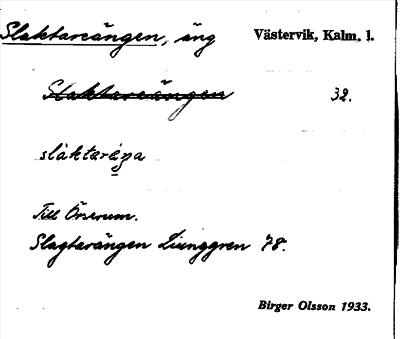 Slaktareängen, äng Västervik, Kalm. l.
Slaktareängen 32.
slàktaréŋa
Till Örserum.
Slagtarängen Ljunggren 78.
Birger Olsson 1933.